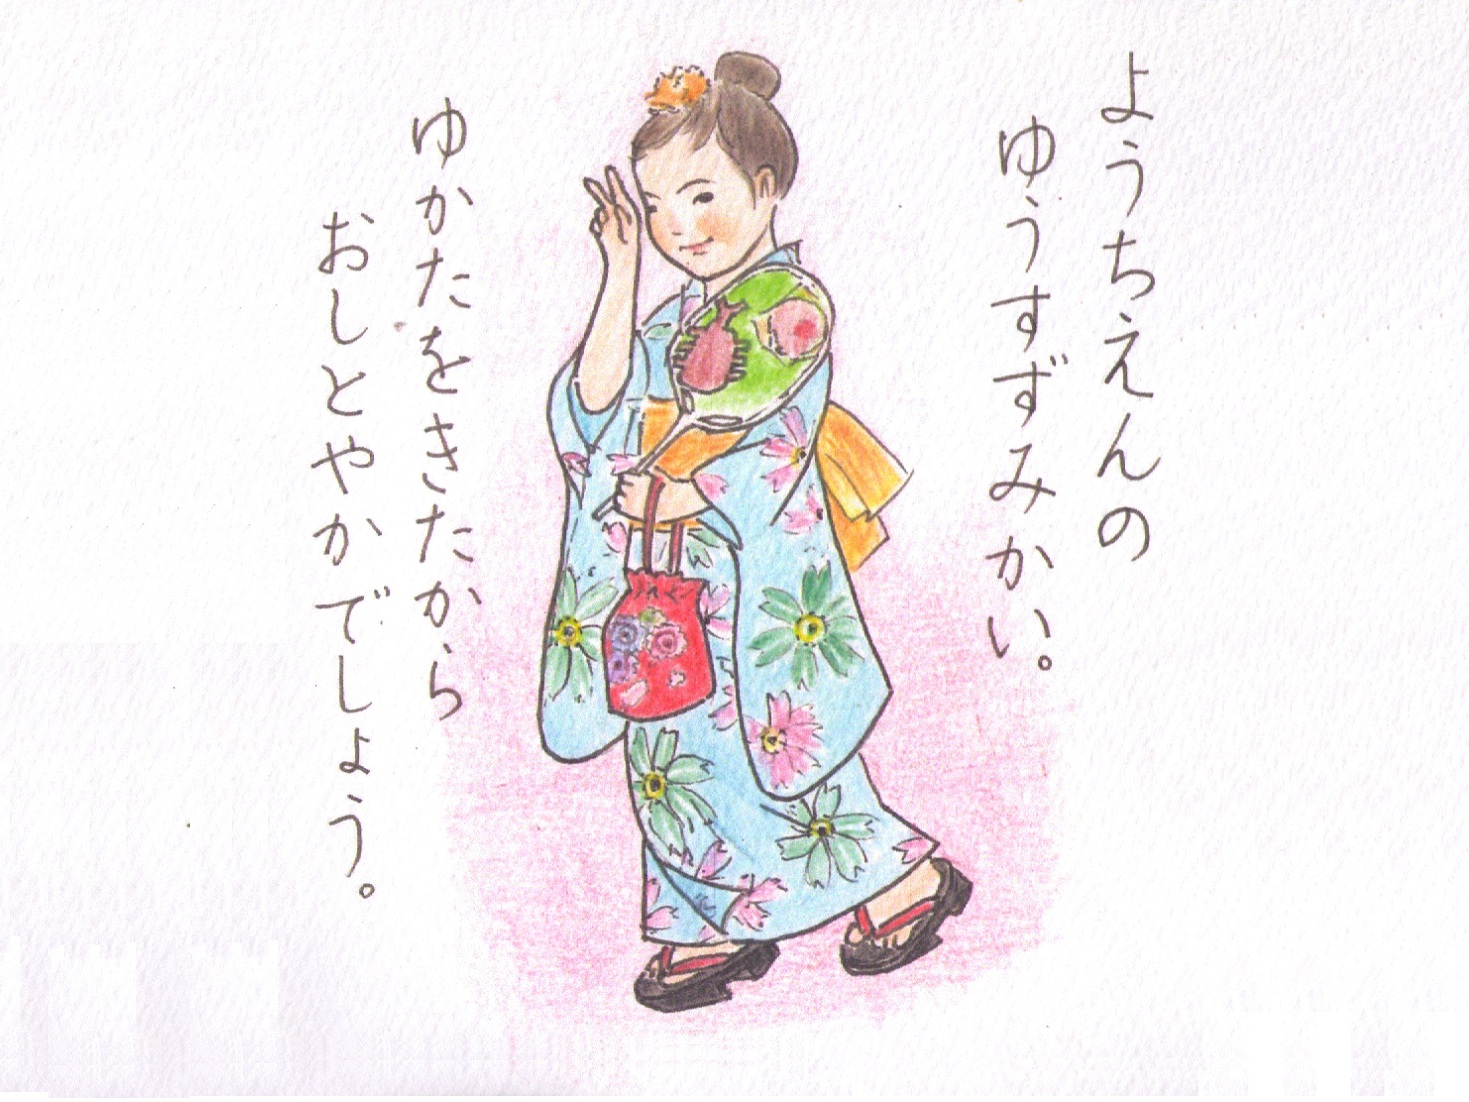 ようちえんの
ゆうすずみかい。
ゆかたをきたから
おしとやかでしょう。